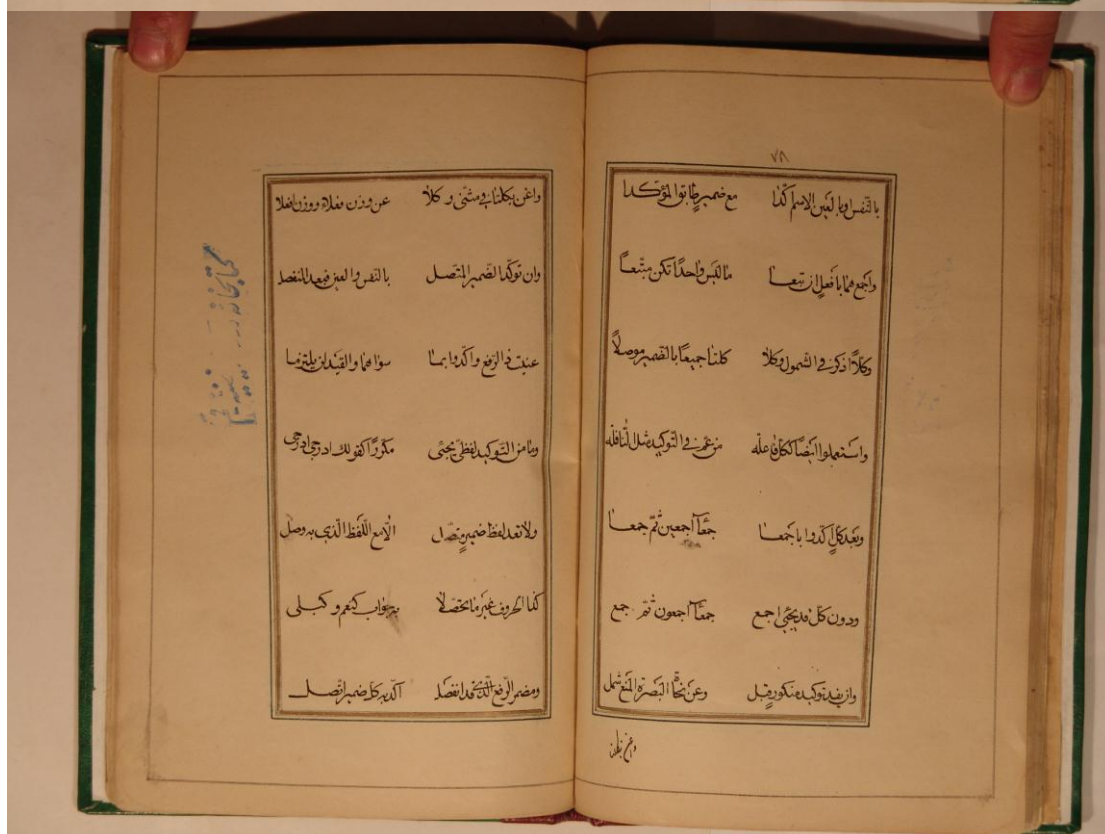 ٧٨
بالنّفس او بالعين الاسم أكّدا مع ضمير طابق المؤكّدا
واجمعهما بافعل ان تبعا ما ليس واحدًا تكن متّبعًا
وكلاًّ اذكر في الشمول وكلا كلتا جميعًا بالضّمير موصلاً
واستعملوا ايضًا ككل فاعله من عمّ في التّوكيد مثل النّافله
وبعد كلّ اكّدوا باجمعا جمعآء اجمعين ثمّ جمعا
ودون كلّ قد يجئ اجمع جمعآء اجمعون ثمّ جمع
وان يفد توكيد منكور قبل وعن نحاة البصرة المنع شمل
واغن بكلتا في مثنّى وكلا عن وزن فعلاء ووزن افعلا
وان توكّد الضّمير المتّصل بالنّفس والعين فبعد المنفصل
عنيت ذا الرّفع واكّدوا بما سواهما والقيد لن يلتزما
وما من التّوكيد لفظيّ يجئ مكرّرًا كقولك ادرجي ادرجي
ولا تعد لفظ ضمير متّصل الاّ مع اللّفظ الّذي به وصل
كذا الحروف غير ما تحصّلا به جواب كنعم وكبلى
ومضمر الرّفع الّذي قد انفصل اكّد به كلّ ضمير اتّصل